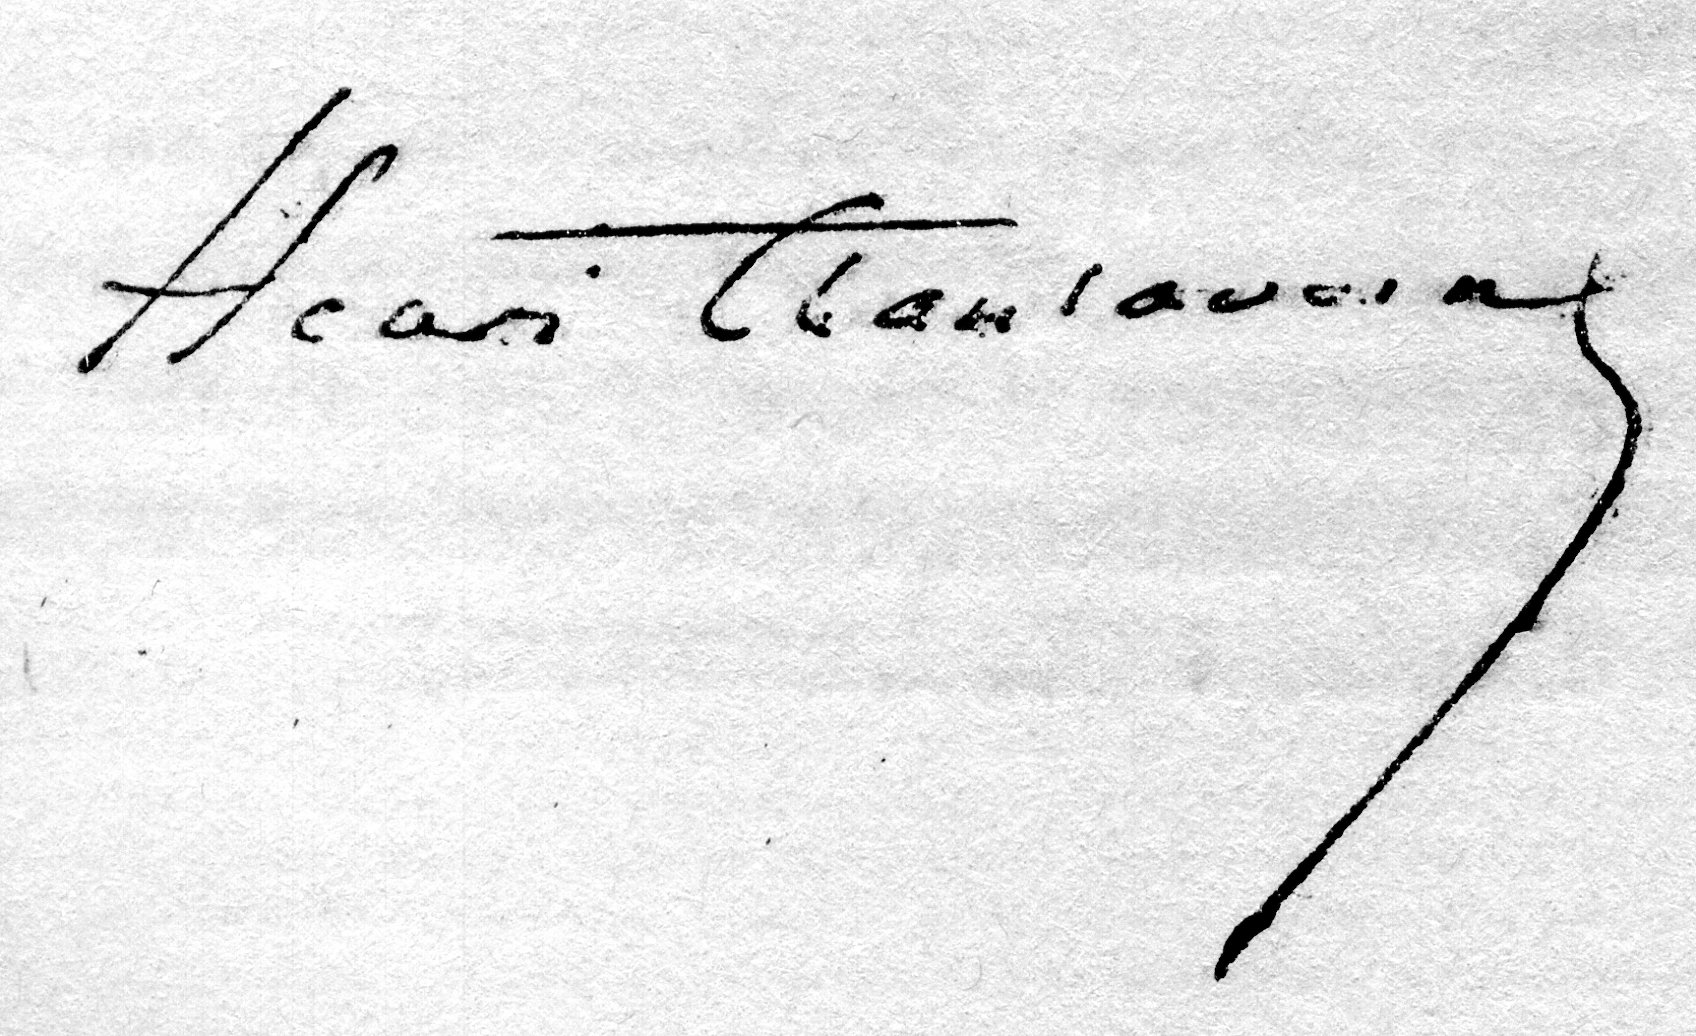 Henri Chantavoine